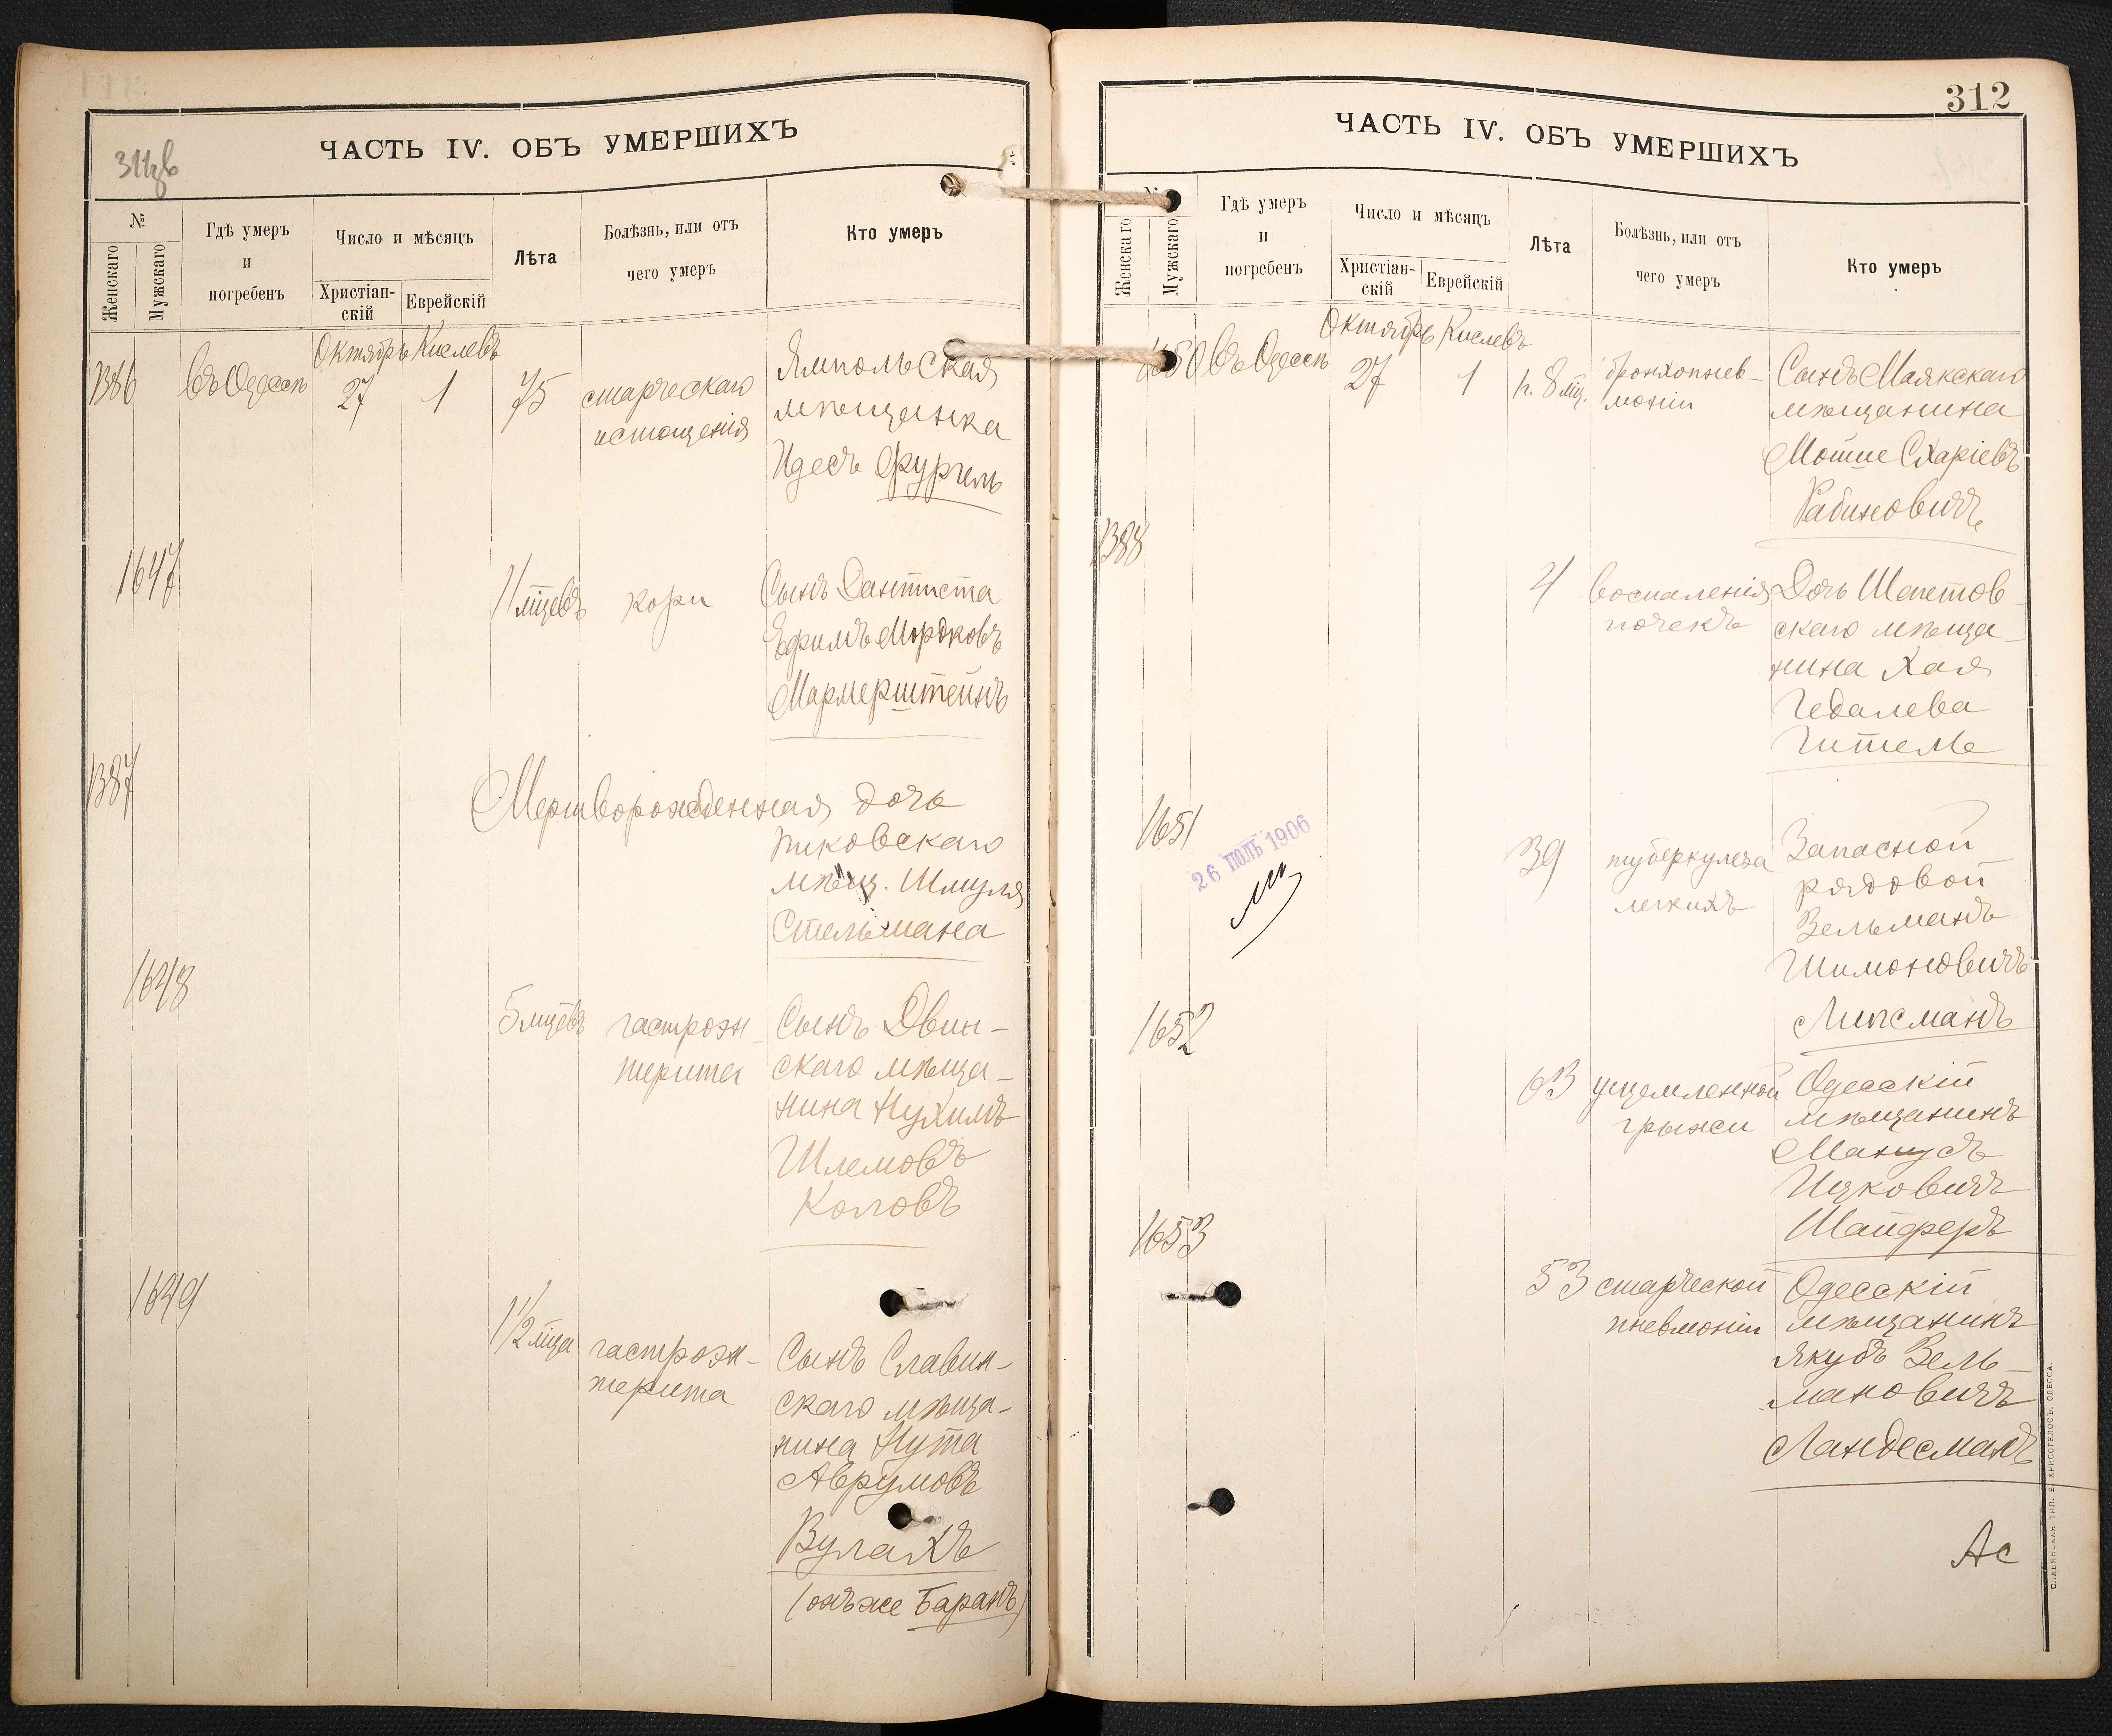 ЧАСТЬ IV. ОБЪ УМЕРШИХЪ
№
Женскаго
Мужскаго
Гдѣ умеръ
и
погребенъ
Число и мѣсяцъ
Христіан-
скій
Еврейскій
Лѣта
Болѣзнь, или отъ
чего умеръ
Кто умеръ
Октябрь Кислевъ
1386 въ Одессѣ 27 1 75 старческаго
истощенія
Ямпольская
мѣщанка
Идесъ Фургель
1647
11 мцевъ кори
Сынъ Дантиста
Ефимъ Мордковъ
Мармерштейнъ
1387
Мертворожденная дочь
Пиковскаго
мѣщ. Шмуля
Стельмаха
1648
5 мцевъ гастроэн-
терита
Сынъ Двин-
скаго мѣща-
нина Нухимъ
Шлемовъ
Коповъ
1649
1 1/2 мца гастроэн-
терита
Сынъ Славин-
скаго мѣща-
нина Нута
Аврумовъ
Вулахъ
(онъ же Баранъ)
312
ЧАСТЬ IV. ОБЪ УМЕРШИХЪ
№
Женскаго
Мужскаго
Гдѣ умеръ
и
погребенъ
Число и мѣсяцъ
Христіан-
скій
Еврейскій
Лѣта
Болѣзнь, или отъ
чего умеръ
Кто умеръ
Октябрь Кислевъ
1650 въ Одессѣ 27 1 1 г. 8 мц. бронхопнев-
моніи
Сынъ Маякскаго
мѣщанина
Мошше Схаріевъ
Рабиновичъ
1388
4 воспаленія
почекъ
Дочь Шепетов-
скаго мѣща-
нина Хая
Гедалева
Гительс
1651
26 ІЮЛЬ 1906
39 туберкулеза
легкихъ
Запасной
рядовой
Зельманъ
Шимоновичъ
Липсманъ
1652
63 ущемленной
грыжи
Одесскій
мѣщанинъ
Манусъ
Ицковичъ
Шайферъ
1653
53 старческой
пневмоніи
Одесскій
мѣщанинъ
Якубъ Зель-
мановичъ
Ландесманъ
Ас
СЛАВЯНСКАЯ ТИП. Е. ХРИСОГЕЛОСЪ, ОДЕССА.